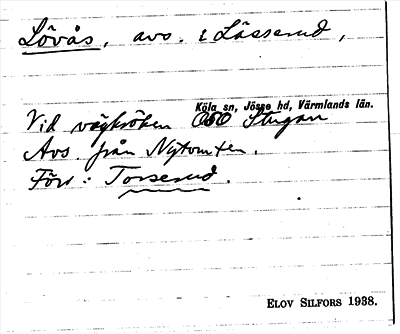 Lövås, avs. i Lässerud,
Köla sn, Jösse hd, Värmlands län.
Vid vägkröken OSO Stugan
Avs. från Nytomten.
Förr: Torserud.
ELOV SILFORS 1938.